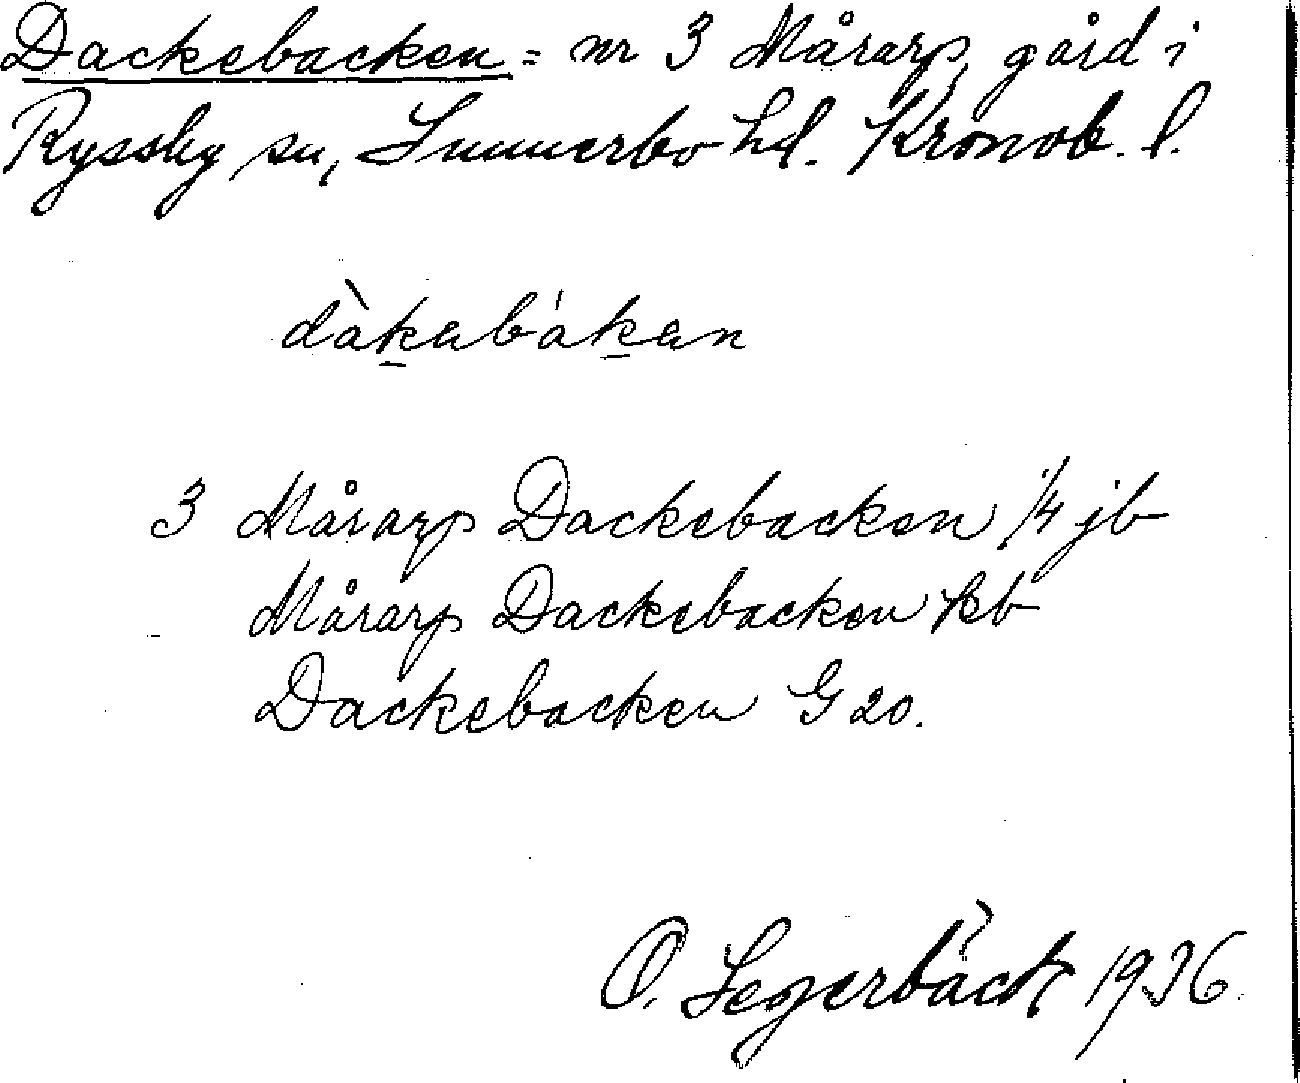 Dackebacken = nr 3 Mårarp, gård i
Ryssby sn, Sunnerbo hd. Kronob. l.
dàkabákan
3 Mårarp Dackebacken 1/4 jb
Mårarp Dackebacken kb
Dackebacken G 20.
O. Segerbäck 1936